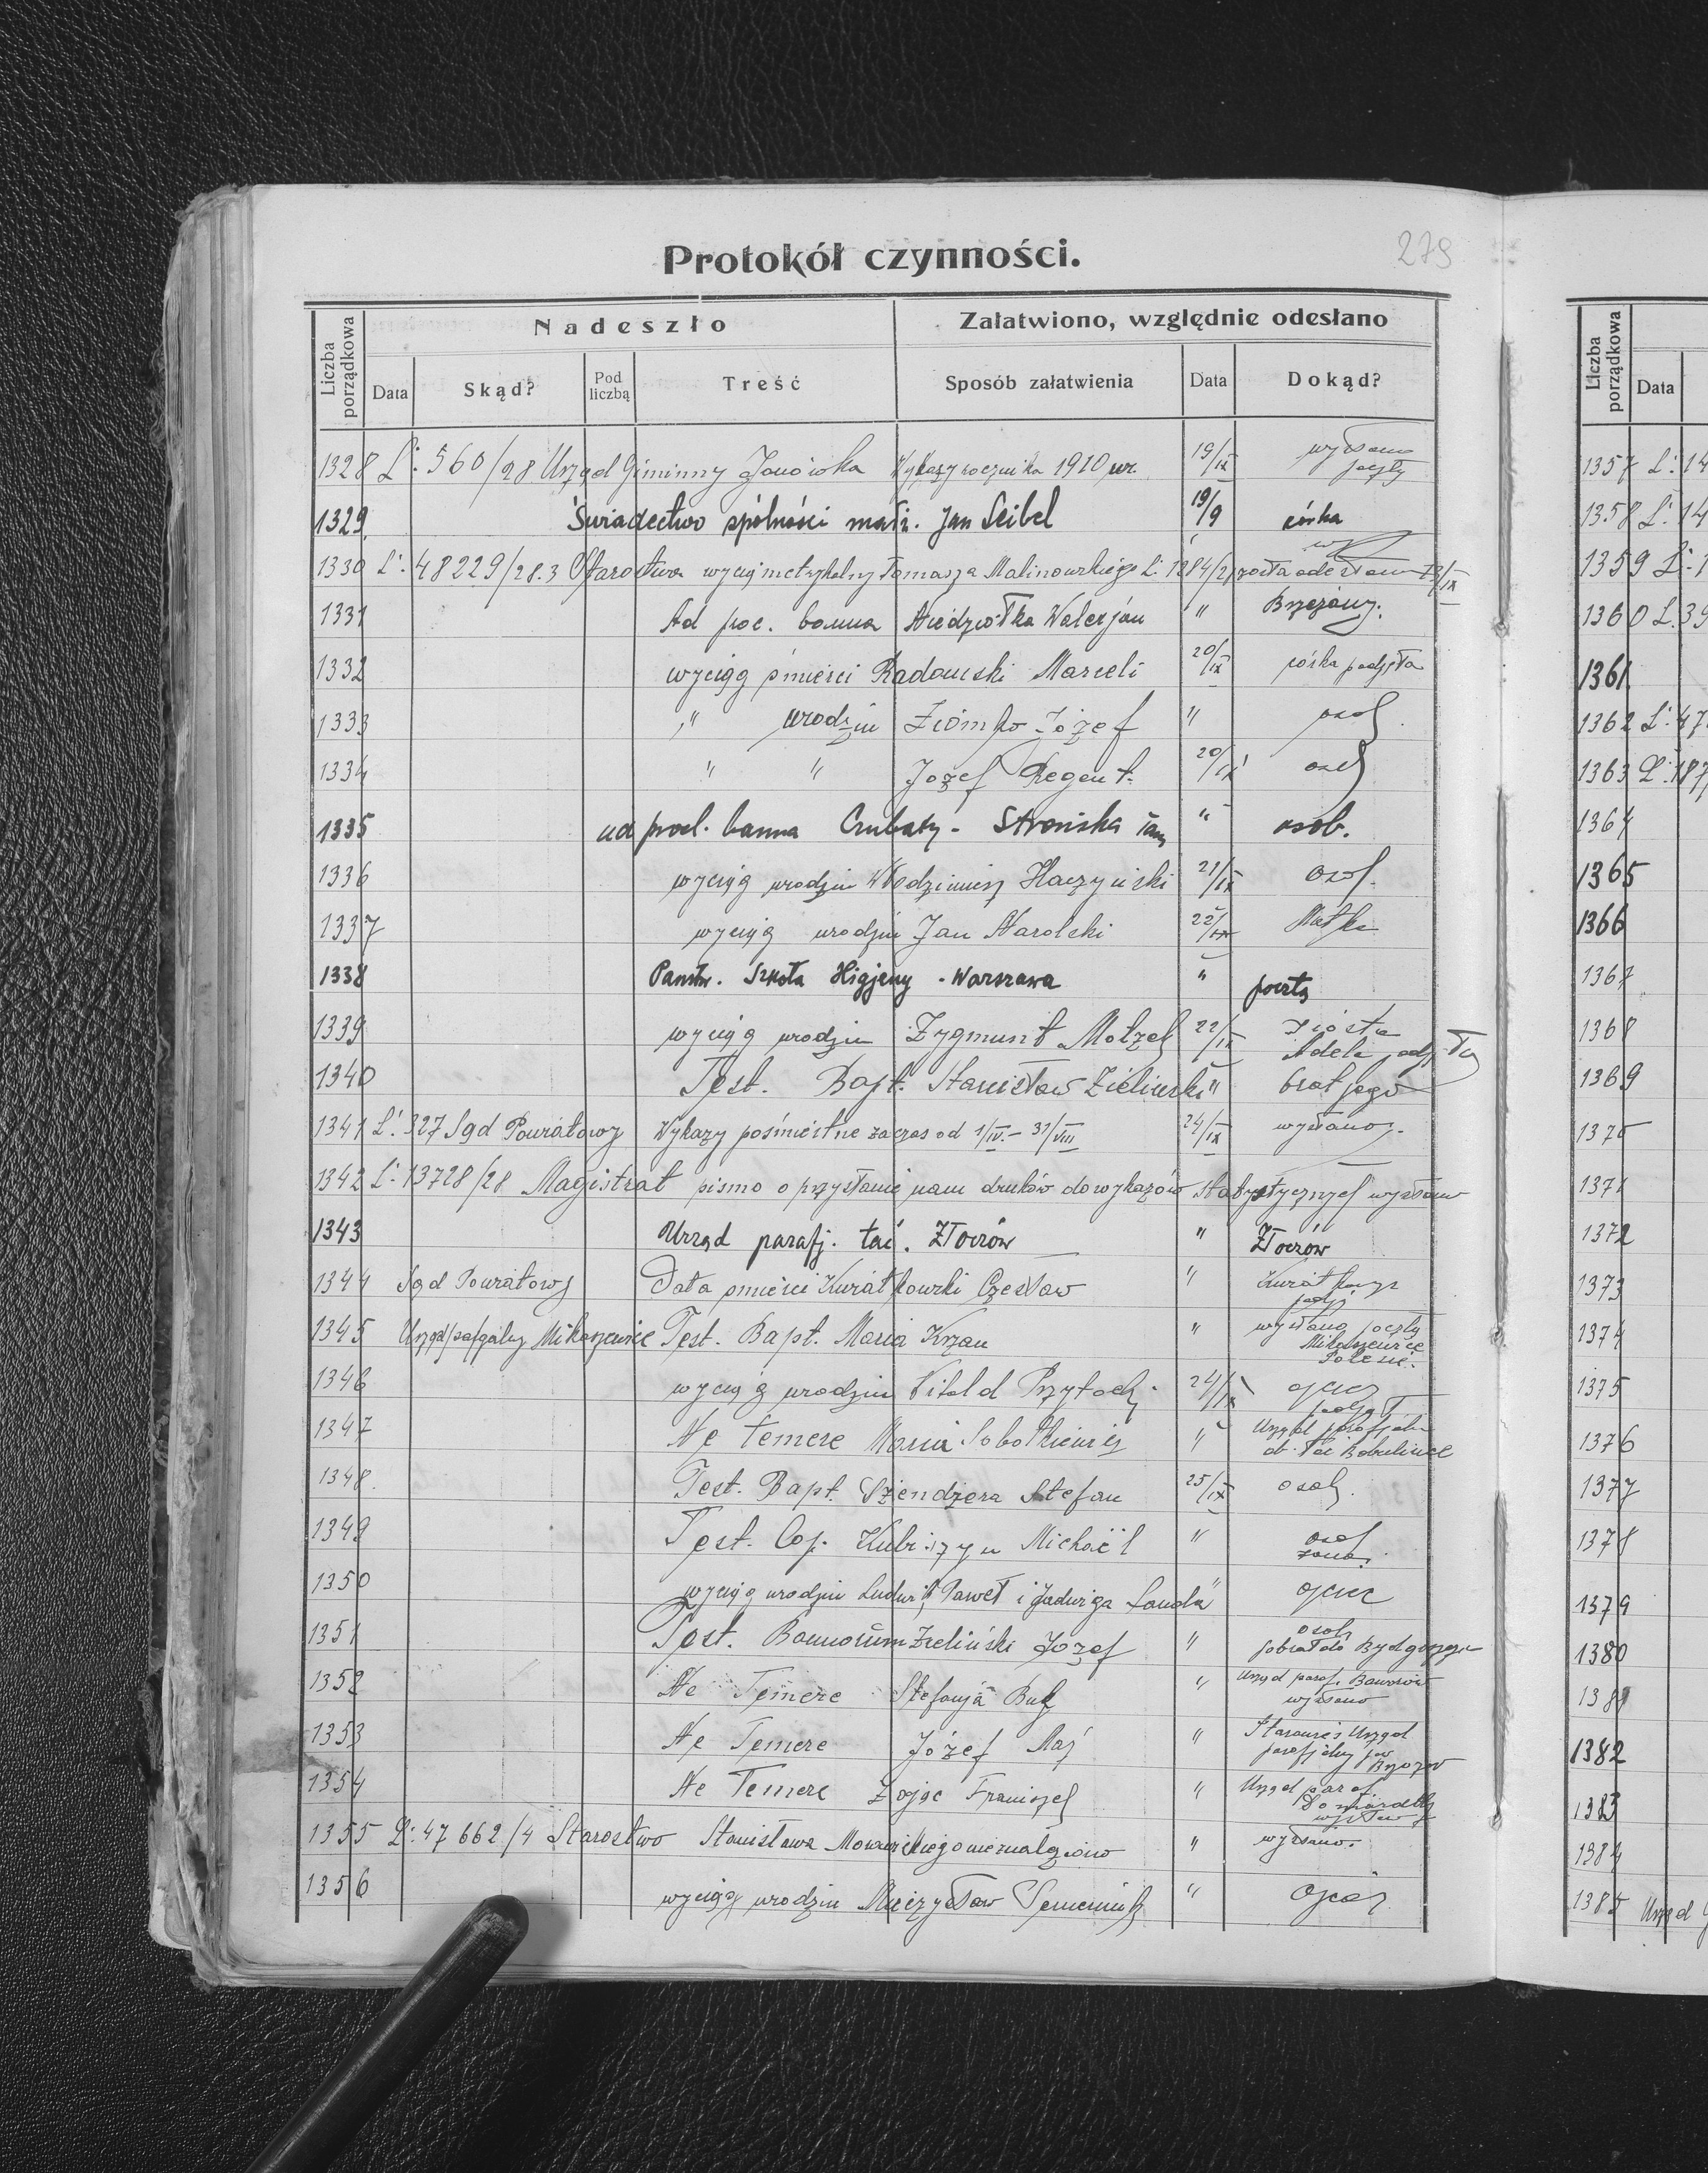 Protokół czynności.
279
Liczba porządkowa
Nadeszło
Załatwiono, względnie odesłano
Data
Skąd?
Pod liczbą
Treść
Sposób załatwienia
Data
Dokąd?
1328 L: 560/28 Urząd Gminny Janówka Wykazy rocznika 1910 ur. 19/IX wysłano pocztą
1329. Świadectwo spólności małż. Jan Seibel 19/9 córka
1330 L: 48229/28.3 Starostwa wyciąg metrykalny Tomasza Malinowskiego L: została odesłana
1331 Ad proc. banna Niedziółka Walerjan " Brzeżany.
1332 wyciąg śmierci Radomski Marceli 20/IX córka podjęła
1333 " urodzin Ziómko Józef " osob.
1334 " " Jozef Regent 20/IX osob
1335 ad procl. banna Czubaty - Strońska " osob.
1336 wyciąg urodzin Włodzimierz Haczyński 21/IX osob.
1337 wyciąg urodzin Jan Narolski 22/IX Matka
1338 Państw. Szkoła Higjeny - Warszawa " pocztą
1339 wyciąg urodzin Zygmunt Molzel 22/IX siostra
Adela podjęła
1340 Test. Bapt. Stanisław Zieliński " brat jego
1341 L: 327 Sąd Powiatowy Wykazy pośmiertne za czas od 1/IV.- 31/VIII 24/IX wysłano.
1342 L: 13728/28 Magistrat pismo o przysłanie nam druków do wykazów statystycznych wysłano
1343 Urząd parafj. łać. Złoczów " Złoczów
1344 Sąd Powiatowy Data śmierci Kwiatkowski Czesław "
1345 Urząd parafjalny Mikaszewice Test. Bapt. Maria Krzan " wysłano pocztą
Mikaszewice
Polesie.
1346 wyciąg urodzin Witold Przytocki 24/IX ojciec
podjął
1347 Ne temere Maria Sobotkiewicz " Urząd parafjalny
ob. łać Bobulińce
1348. Test. Bapt. Szendzera Stefan 25/IX osob.
1349 Test. Cop. Kubiszyn Michaël " osob
żona.
1350 wyciąg urodzin Ludwik, Paweł i Jadwiga Landa " ojciec
1351 Test. Bannorum Zieliński Jozef " osob
pobrał do Bydgoszczy
1352 Ne Temere Stefanja Buk " Urząd paraf. Baworów
wysłano
1353 Ne Temere Józef Maj " Urząd
parafjalny
1354 Ne Temere Zając Franciszek " Urząd paraf
Domaradz
wysłano
1355 L: 47662/4 Starostwo Stanisława " wysłano.
1356 wyciąg urodzin Mieczysław Semeniuk " Ojciec
Liczba porządkowa
Data
1357 L: 14
1358 L: 14
1359 L: 1
1360 L. 39
1361.
1362 L: 47
1363 L: 187
1364
1365
1366
1367
1368
1369
1370
1371
1372
1373
1374
1375
1376
1377
1378
1379
1380
1381
1382
1383
1384
1385 Urząd